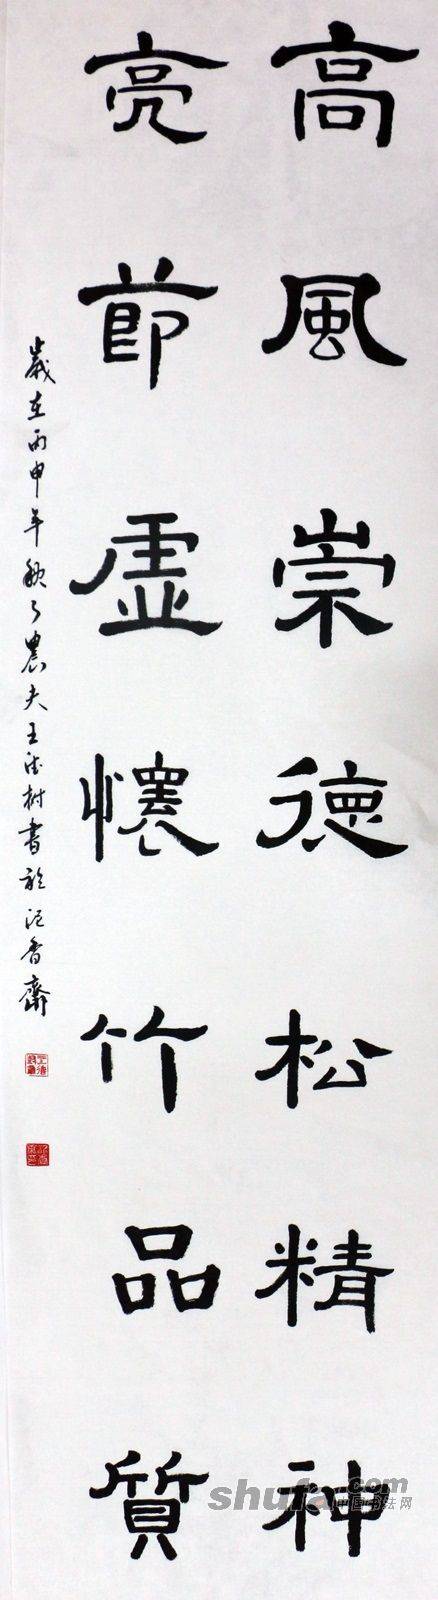 高風崇德松精神
亮節虛懷竹品質
歲在丙申年秋月農夫王德樹書於泥香齋
shufa.com
中国书法网